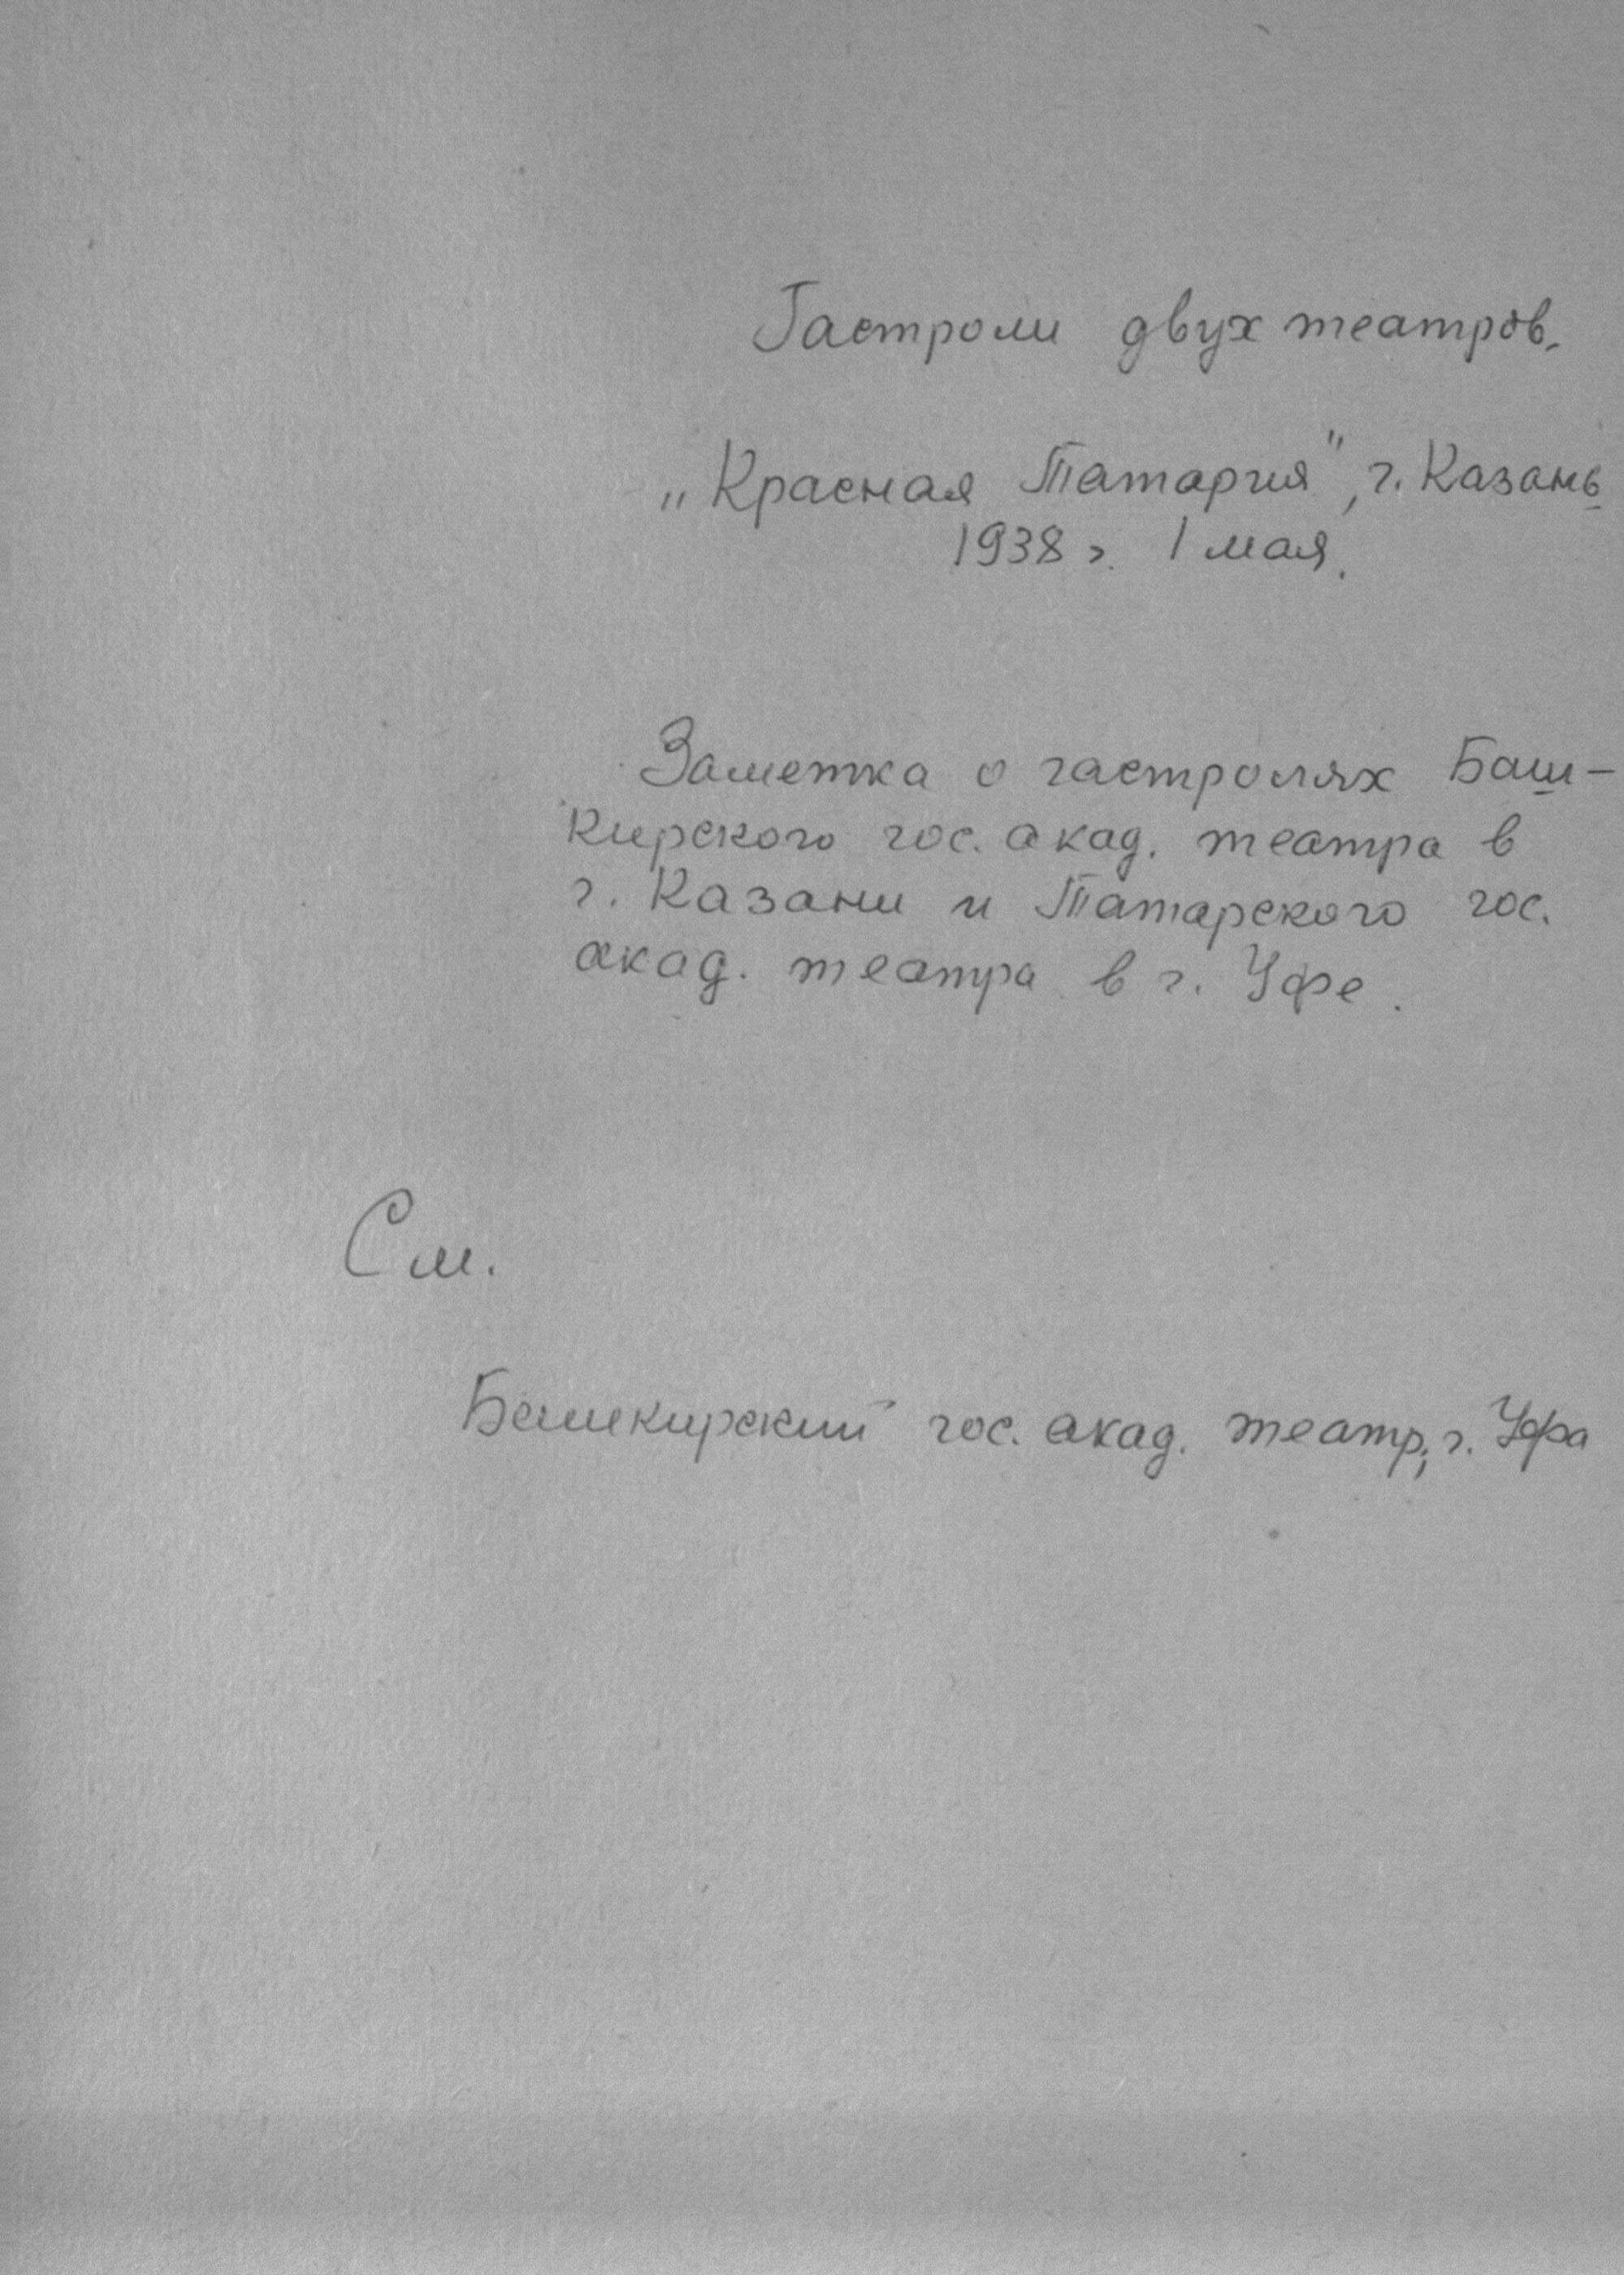 Гастроли двух театров.
„Красная Татария", г. Казань
1938 г. 1 мая.
Заметка о гастролях Баш-
кирского гос. акад. театра в
г. Казани и Татарского гос.
акад. театра в г. Уфе.
См.
Башкирский гос. акад. театр, г. Уфа